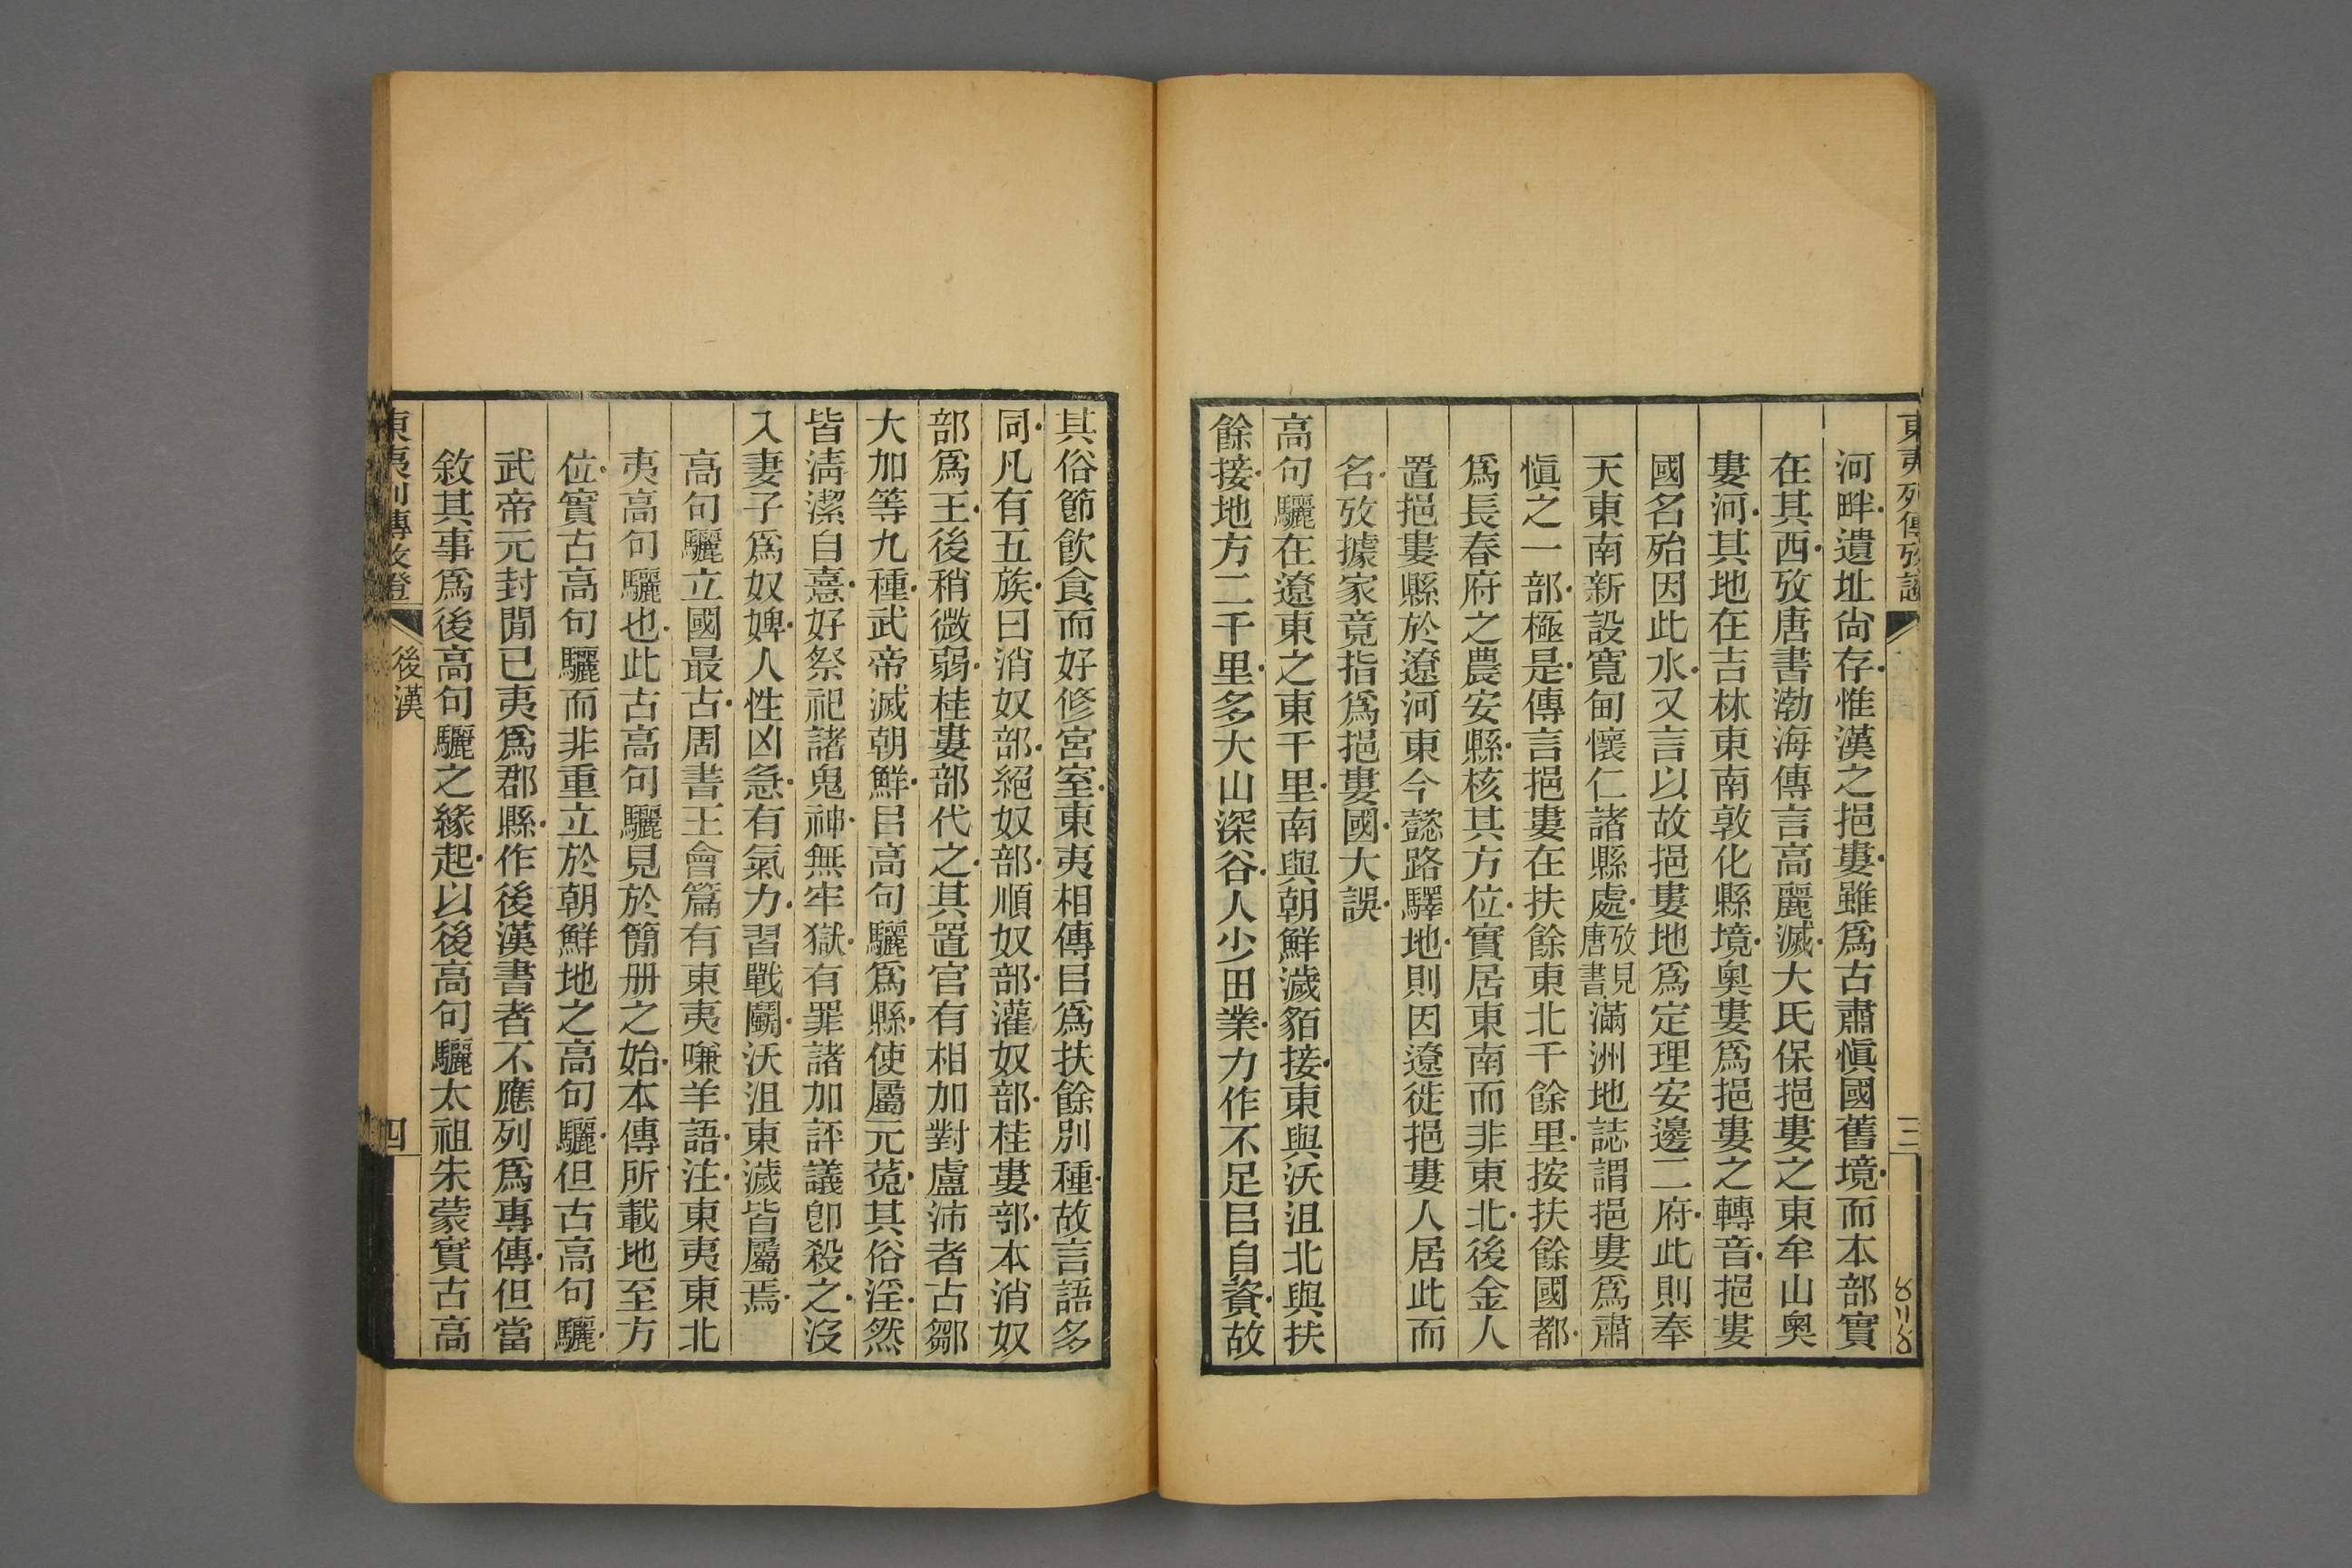 東夷列傳攷證
三
河畔遺址尙存惟漢之挹婁雖爲古肅愼國舊境而本部實
在其西攷唐書渤海傳言高麗滅大氏保挹婁之東牟山奧
婁河其地在吉林東南敦化縣境奧婁爲挹婁之轉音挹婁
國名殆因此水又言以故挹婁地爲定理安邊二府此則奉
天東南新設寬甸懷仁諸縣處攷見唐書滿洲地誌謂挹婁爲肅
愼之一部極是傳言挹婁在扶餘東北千餘里按扶餘國都
爲長春府之農安縣核其方位實居東南而非東北後金人
置挹婁縣於遼河東今懿路驛地則因遼徙挹婁人居此而
名攷據家竟指爲挹婁國大誤
高句驪在遼東之東千里南與朝鮮濊貊接東與沃沮北與扶
餘接地方二千里多大山深谷人少田業力作不足㠯自資故
其俗節飮食而好修宮室東夷相傳㠯爲扶餘別種故言語多
同凡有五族曰消奴部絕奴部順奴部灌奴部桂婁部本消奴
部爲王後稍微弱桂婁部代之其置官有相加對盧沛者古鄒
大加等九種武帝滅朝鮮㠯高句驪爲縣使屬元菟其俗淫然
皆淸潔自憙好祭祀諸鬼神無牢獄有罪諸加評議卽殺之沒
入妻子爲奴婢人性凶急有氣力習戰鬭沃沮東濊皆屬焉
高句驪立國最古周書王會篇有東夷嗛羊語注東夷東北
夷高句驪也此古高句驪見於簡册之始本傳所載地至方
位實古高句驪而非重立於朝鮮地之高句驪但古高句驪
武帝元封閒已夷爲郡縣作後漢書者不應列爲專傳但當
敘其事爲後高句驪之緣起以後高句驪太祖朱蒙實古高
東夷列傳攷證
後漢
四